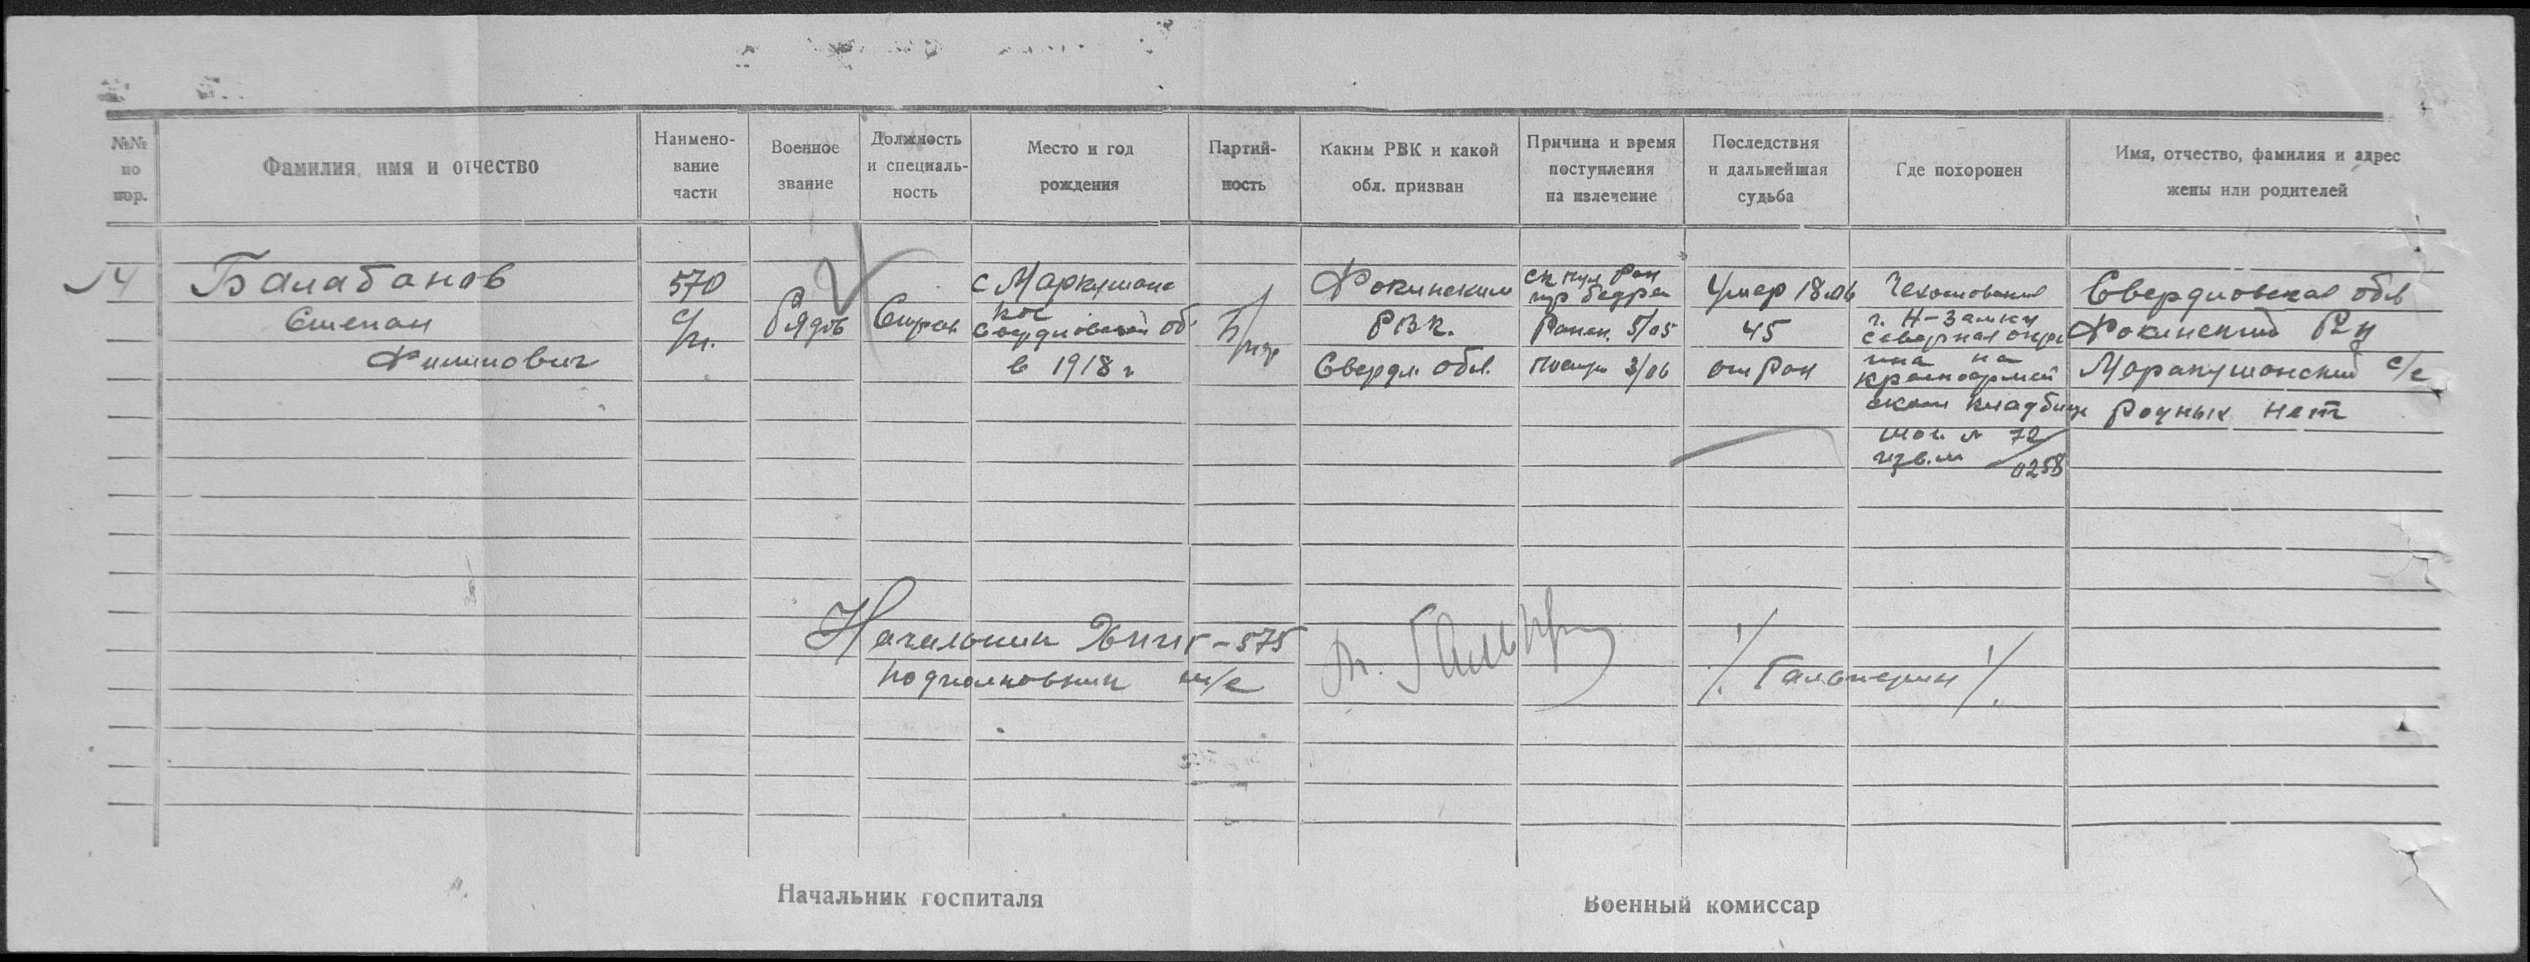 №№ по пор.
Фамилия, имя и отчество
Наимено-
вание
части
Военное
звание
Должность
и специаль-
ность
Место и год
рождения
Партий-
ность
Каким РВК и какой
обл. призван
Причина и время
поступления
на излечение
Последствия
и дальнейшая
судьба
Где похоронен
Имя, отчество, фамилия и адрес
жены или родителей
14
Балабанов
Степан
Филипович
570
с/п.
Рядов
Стрел
с Маркушанс
кое
Свердловской об
в 1918 г
Б/пар
Фокинским
РВК.
Свердл. обл.
ск пул. ран
бедра
Ранен. 5/05
поступ 3/06
Умер 18.06
45
от ран
Чехословакия
г. Н-Замки
северная окра
ина на
красноармей
ском кладбище
мог. № 72
изв. № 0258
Свердловская обл
Фокинский Рн
Маракушанский с/с
Родных нет
Начальник ХППГ-575
подполковник м/с
/Гальперин/
Начальник госпиталя
Военный комиссар